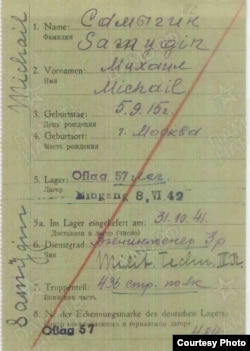 Michail
Samygin
1. Name: Самыгин
Фамилия
Samygin
2. Vornamen: Михаил
Имя
Michail
3. Geburtstag: 5.9.15г.
День рождения
4. Geburtsort: г. Москва
Место рождения
5. Lager: Oflag 57
Лагерь
Eingang 8. VI 42
5a. Im Lager eingeliefert am: 31.10.41.
6. Dienstgrad: Воининженер 3р
Чин
Milit. Techn. II R.
7. Truppenteil: 436 стр. полк
Воинская часть
8. Nr. der Erkennungsmarke des deutschen Lagers:
Oflag 57
Courtesy Photo